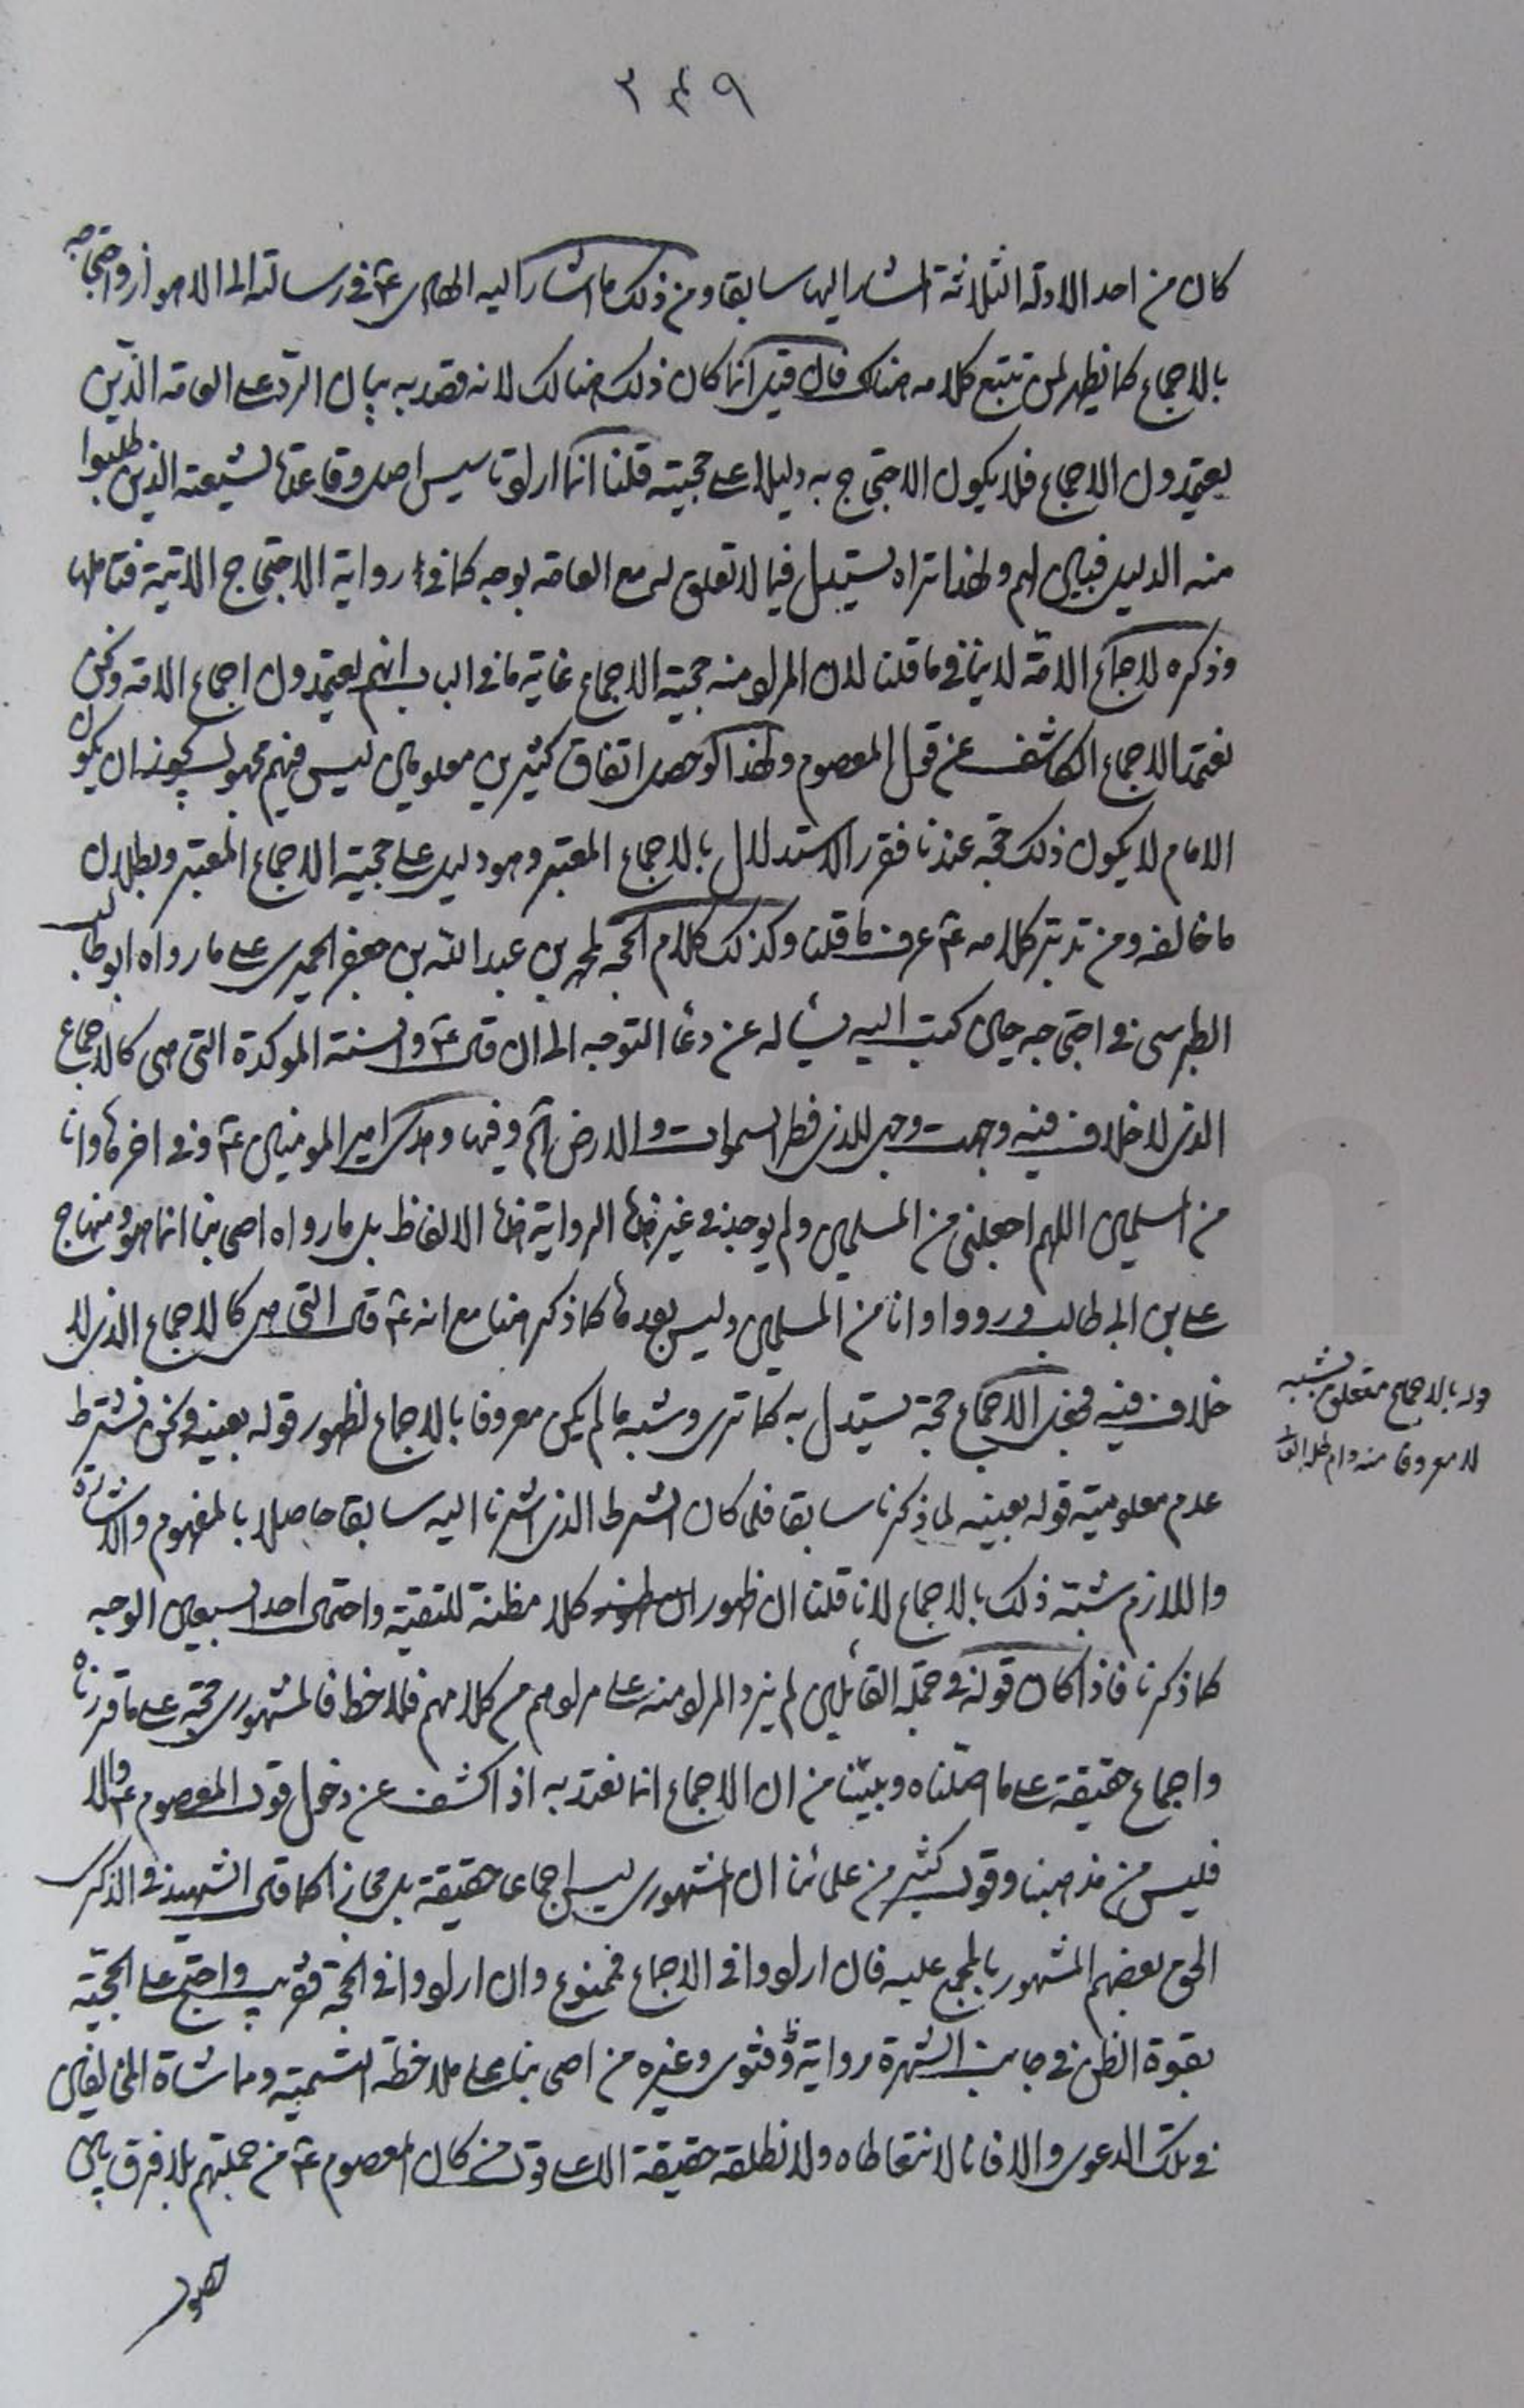 ٣٤٩
كان من احد الادلة الثلاثة المشار اليها سابقا ومن ذلك ما اشار اليه الهادى ع في رسالته الى الاهواز واحتجاجه
بالاجماع كما يظهر لمن تتبع كلامه هناك فان قيل انما كان ذلك هنالك لانه قصد به بيان الرد على العامة الذين
يعتمدون الاجماع فلا يكون الاحتجاج به دليلا على حجيته قلنا انما اراد تاسيس اصل وقاعدة لشيعته الذين طلبوا
منه الدليل فبين لهم ولهذا تراه يستدل فيما لا تعلق له مع العامة بوجه كما في رواية الاحتجاج الاتية فتاملها
وذكره لاجماع الامة لا ينافي ما قلنا لان المراد منه حجية الاجماع غاية ما في الباب انهم يعتمدون اجماع الامة ونحن
نعتمد الاجماع الكاشف عن قول المعصوم ولهذا لو حصل اتفاق كثيرين معلومين ليس فيهم مجهول يجوز ان يكون
الامام لا يكون ذلك حجة عندنا فقرر الاستدلال بالاجماع المعتبر وهو دليل على حجية الاجماع المعتبر وبطلان
ما خالفه ومن تدبر كلامه ع عرف ما قلنا وكذلك كلام الحجة لمحمد بن عبد الله بن جعفر الحميرى على ما رواه ابو طالب
الطبرسى في احتجاجه حين كتب اليه يساله عن دعا التوجه الى ان قال ع والسنة الموكدة التى هى كالاجماع
الذى لا خلاف فيه وجهت وجهى للذى فطر السموات والارض الخ وفيها وهدى امير المومنين ع وفي اخرها وانا
من المسلمين اللهم اجعلنى من المسلمين ولم يوجد في غير هذه الرواية هذه الالفاظ بل ما رواه اصحابنا انما هو ومنهاج
على بن ابى طالب ورووا وانا من المسلمين وليس بعدها كما ذكر هنا مع انه ع قال التى هى كالاجماع الذى لا
خلاف فيه فجعل الاجماع حجة يستدل به كما ترى وشبه ما لم يكن معروفا بالاجماع لظهور قوله بعينه ونحن نشترط
عدم معلومية قوله بعينه لما ذكرنا سابقا فلما كان الشرط الذى اشرنا اليه سابقا حاصلا بالمفهوم والاشارة
واللازم شبّه ذلك بالاجماع لانا قلنا ان ظهور كلا مظنة للتقية واحتمال احد السبعين الوجه
كما ذكرنا فاذا كان قوله في جملة القائلين لم يزد المراد منه على مرادهم من كلامهم فلاحظ فالمشهورى حجة على ما قررناه
واجماع حقيقة على ما اصلناه وبينا من ان الاجماع انما نعتد به اذا كشف عن دخول قول المعصوم ع والا
فليس من مذهبنا وقول كثير من علمائنا ان المشهورى ليس اجماعا حقيقة بل مجازا كما قال الشهيد في الذكرى
الحق بعضهم المشهور بالمجمع عليه فان ارادوا في الاجماع فممنوع وان ارادوا في الحجة فقريب واحتج على الحجية
بقوة الظن في جانب الشهرة رواية وفتوى وغيره من اصحابنا على ملاحظة التسمية ومماشاة المخالفين
في تلك الدعوى والا فانا لا نتعاطاه ولا نطلقه حقيقة الا على قول من كان المعصوم ع من جملتهم بلا فرق بين
قوله بالاجماع متعلق بشبه
لا معروفا منه دام ظله العالى